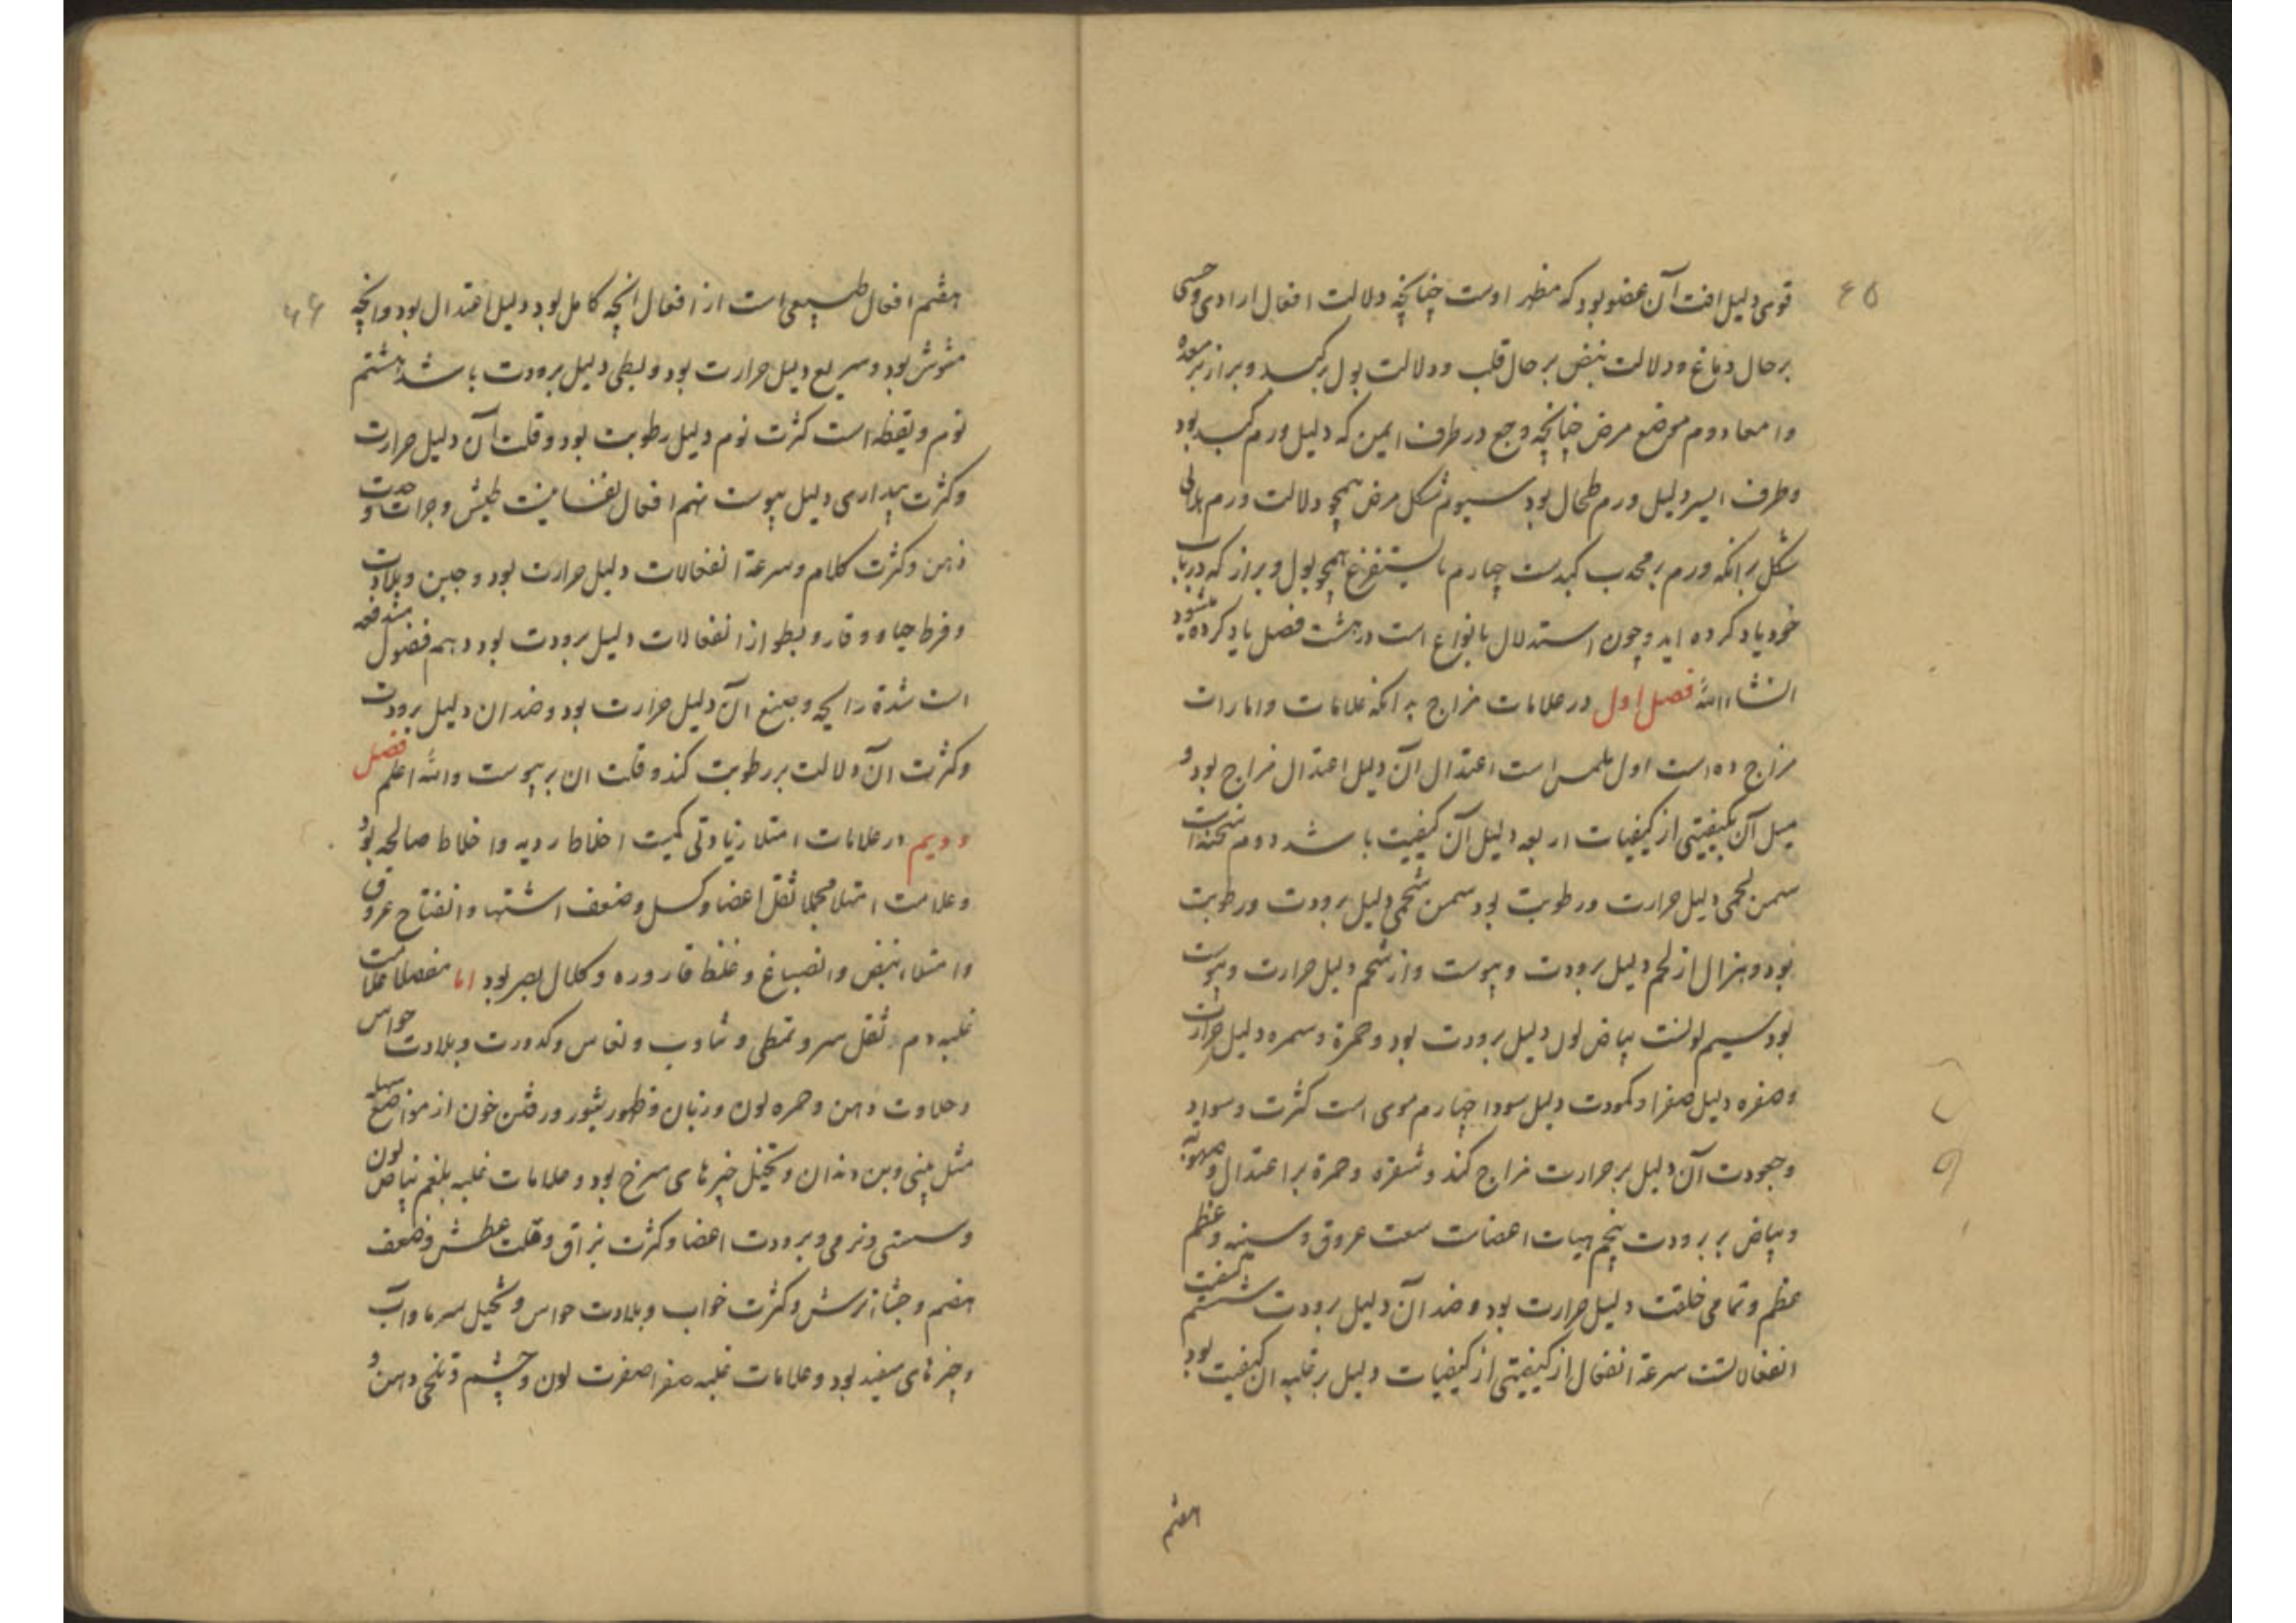 ٤٥
قوی دلیل افت آن عضو بود که مظهر اوست چنانچه دلالت افعال ارادی و حسی
بر حال دماغ و دلالت نبض بر حال قلب و دلالت بول بر کبد و براز بر معده
و امعا دوم موضع مرض چنانچه وجع در طرف ایمن که دلیل ورم کبد بود
و طرف ایسر دلیل ورم طحال بود سیوم شکل مرض همچو دلالت ورم هلالی
شکل بر انکه ورم بر محدب کبدست چهارم ما یستفرغ همچو بول و براز که در باب
خود یاد کرده اید و چون استدلال بانواع است در هشت فصل یاد کرده میشود
انشاءالله فصل اول در علامات مزاج بدانکه علامات و امارات
مزاج ده است اول ملمس است اعتدال آن دلیل اعتدال مزاج بود و
میل آن بکیفیتی از کیفیات اربعه دلیل آن کیفیت باشد دوم سحنه است
سمن لحمی دلیل حرارت و رطوبت بود سمن شحمی دلیل برودت و رطوبت
بود و هزال از لحم دلیل برودت و یبوست و از شحم دلیل حرارت و یبوست
بود سیم لونست بیاض لون دلیل برودت بود و حمرة و سمره دلیل حرارت
و صفره دلیل صفرا و کمودت دلیل سودا چهارم موی است کثرت و سواد
و جعودت آن دلیل بر حرارت مزاج کند و شقره و حمرة بر اعتدال و صهوبة
و بیاض بر برودت پنجم هیات اعضاست سعت عروق و سینه و عظم
عظم و تمامی خلقت دلیل حرارت بود و ضد آن دلیل برودت ششم کیفیت
انفعالاتست سرعة انفعال از کیفیتی از کیفیات دلیل بر غلبه ان کیفیت بود
هفتم
۴۶
هفتم افعال طبیعی است از افعال انچه کامل بود دلیل اعتدال بود و انچه
مشوش بود و سریع دلیل حرارت بود و بطی دلیل برودت باشد هشتم
نوم و یقظه است کثرت نوم دلیل رطوبت بود و قلت آن دلیل حرارت
و کثرت بیداری دلیل یبوست نهم افعال نفسانیست طیش و جرات و حدت
ذهن و کثرت کلام و سرعة انفعالات دلیل حرارت بود و جبن و بلادت
و فرط حیا و وقار و بطو از انفعالات دلیل برودت بود دهم فضول مندفعه
است شدة رایحه و صبغ آن دلیل حرارت بود و ضد ان دلیل برودت
و کثرت آن دلالت بر رطوبت کند و قلت ان بر یبوست والله اعلم فصل
دویم در علامات امتلا زیادتی کمیت اخلاط ردیه و اخلاط صالحه بود
و علامت امتلا مجملا ثقل اعضا و کسل و ضعف اشتها و انفتاح عروق
و امتلاء نبض و انصباغ و غلظ قاروره و کلال بصر بود اما مفصلا علامت
غلبه دم ثقل سر و تمطی و تثاوب و نعاس و کدورت و بلادت حواس
و حلاوت دهن و حمره لون و زبان و ظهور بثور و رفتن خون از مواضع سهله
مثل بینی و بن دندان و تخیل چیزهای سرخ بود و علامات غلبه بلغم بیاض لون
و سستی و نرمی و برودت اعضا و کثرت بزاق و قلت عطش و ضعف
هضم و جشاء ترش و کثرت خواب و بلادت حواس و تخیل سرما و آب
و چیزهای سفید بود و علامات غلبه صفرا صفرت لون و چشم و تلخی دهن و